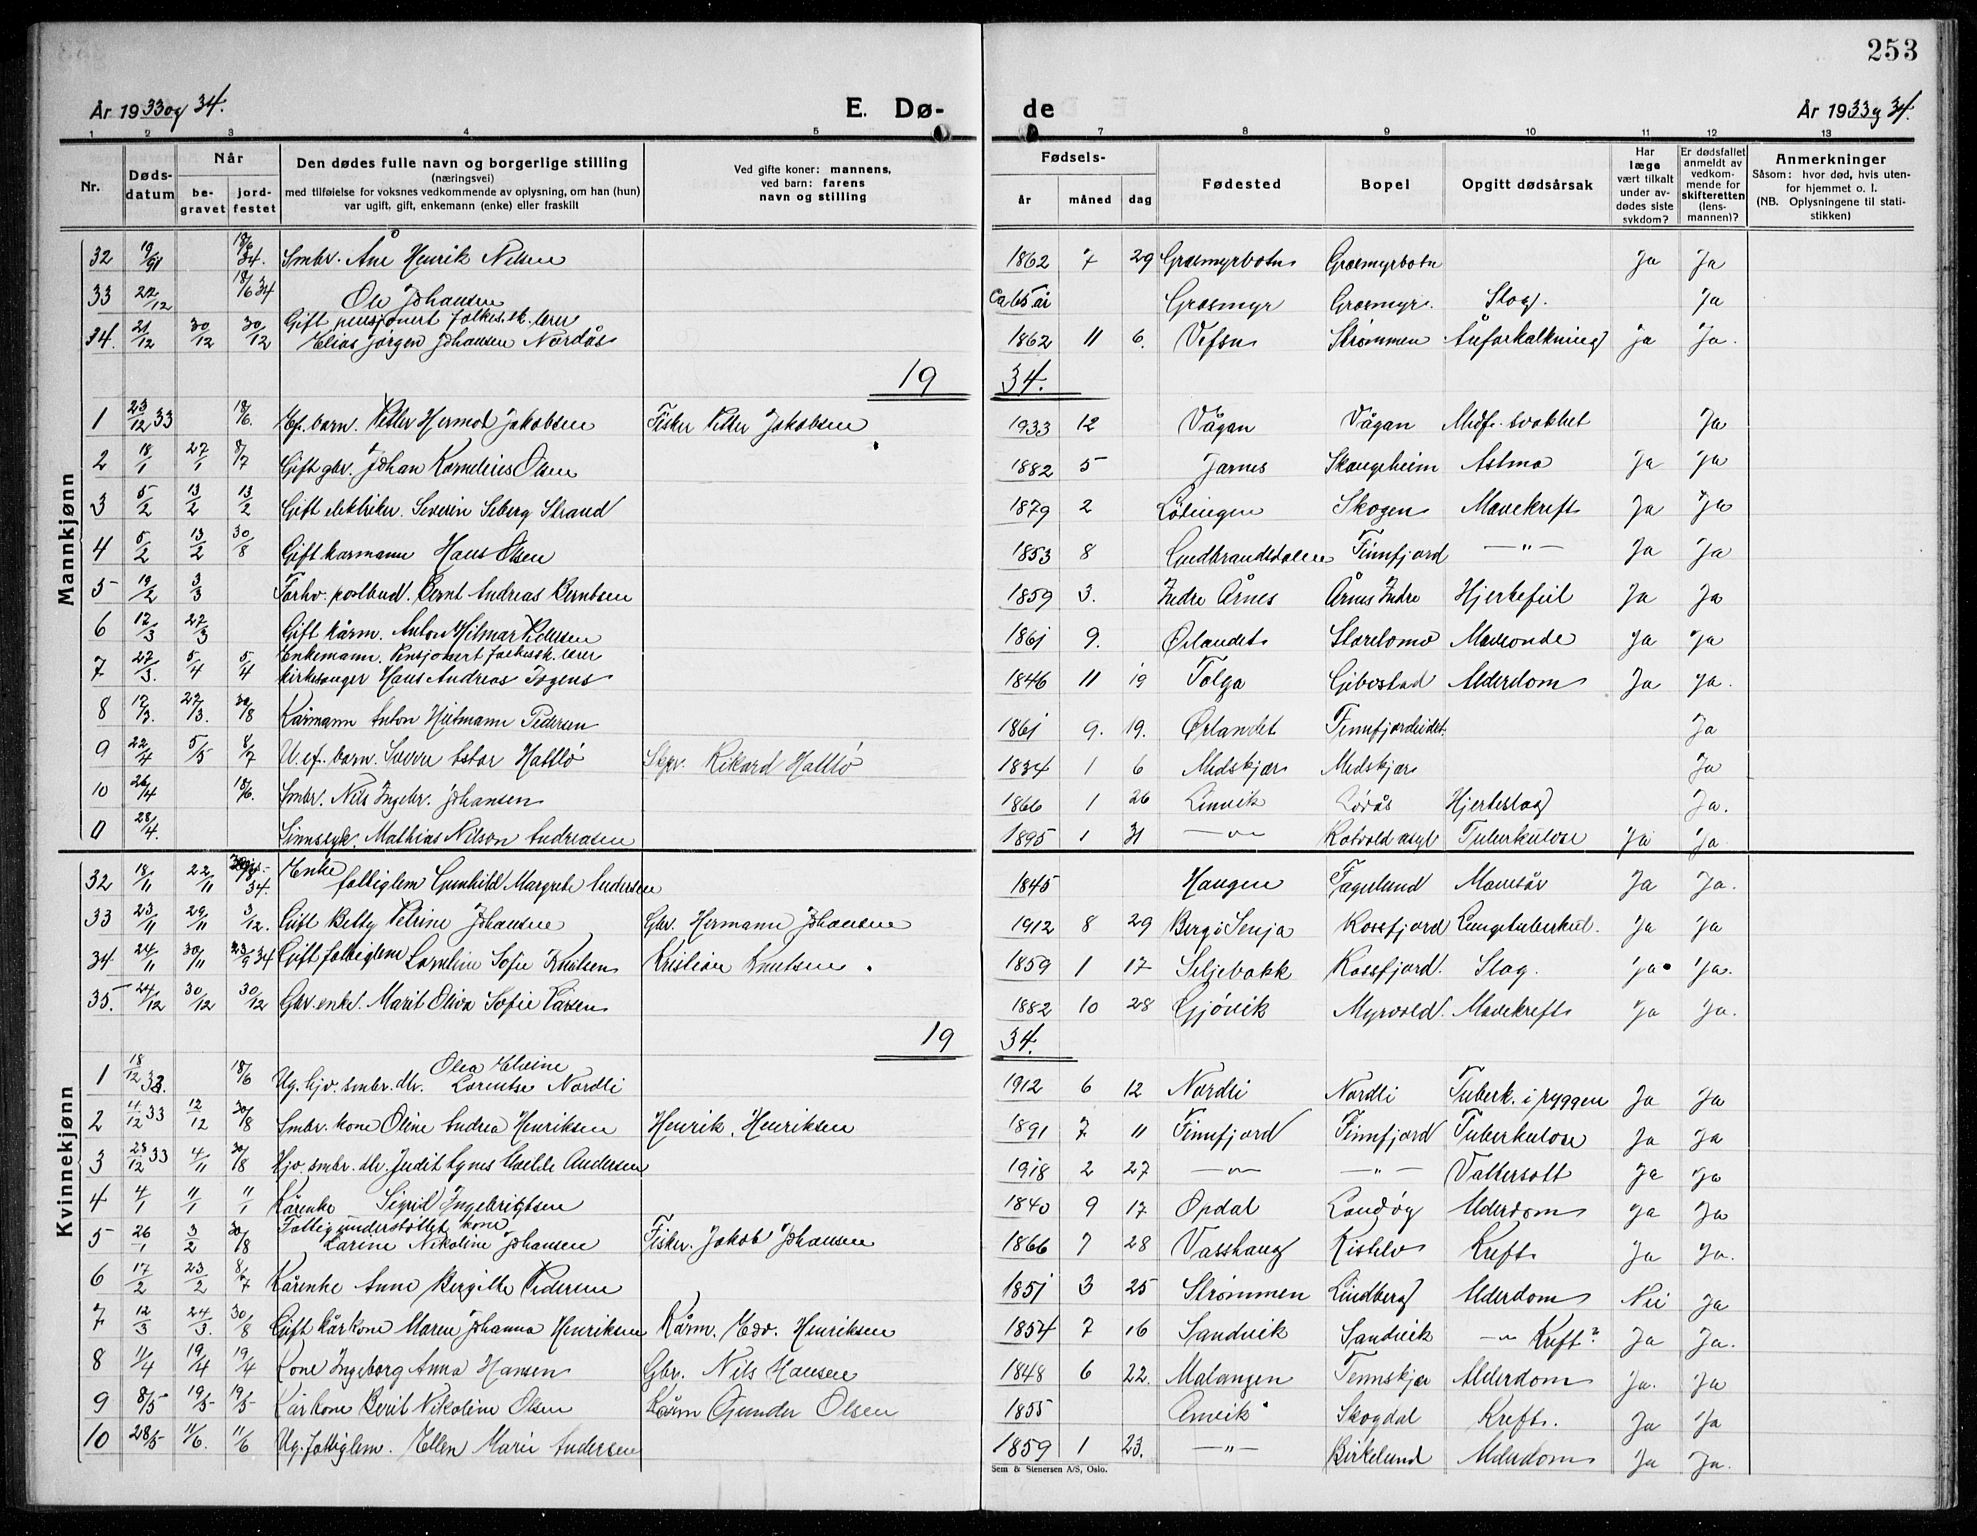 253
År 1933 og 34.
E. Dø-
de
År 1933 og 34.
1 2 3 4 5 7 8 9 10 11 12 13
Nr.
Døds-
datum
Når
be-
gravet
jord-
festet
Den dødes fulle navn og borgerlige stilling
(næringsvei)
med tilføielse for voksnes vedkommende av oplysning, om han (hun)
var ugift, gift, enkemann (enke) eller fraskilt
Ved gifte koner: mannens,
ved barn: farens
navn og stilling
Fødsels-
år måned dag
Fødested
Bopel
Opgitt dødsårsak
Har
læge
vært tilkalt
under av-
dødes siste
sykdom?
Er dødsfallet
anmeldt av
vedkom-
mende for
skifteretten
(lens-
mannen)?
Anmerkninger
Såsom: hvor død, hvis uten-
for hjemmet o. l.
(NB. Oplysningene til stati-
stikken)
Mannkjønn
32 18/6 34. Smbr. Henrik Nilsen 1862 7 29 Græsmyrbotn Græsmyrbotn Ja Ja
33 22/12 18/6 34 Ole Johansen Ca 65 år Græsmyr Græsmyr. Slag. Ja
34. 21/12 30/12 30/12 Gift pensjonert folkesk. lærer
Elias Jørgen Johansen Nordås 1862 11 6. Vefsn Strømmen Åreforkalkning Ja Ja.
19 34.
1 23/12 33 18/6. Ef. barn. Petter Hermod Jakobsen Fisker Petter Jakobsen 1933 12 Vågan Vågan Medf. svakhet Ja
2 18/1 27/1 8/7 Gift gbr. Johan Kornelius Olsen 1882 5 Jarnes Skaugheim Astma Ja Ja
3 5/2 13/2 13/2 Gift elektriker. Severin Seberg Strand 1879 2 Lødingen Skogen Mavekreft Ja Ja
4 5/2 13/2 30/8 Gift karmann Hans Olsen 1853 8 Gudbrandsdalen Finnfjord —"— Ja Ja
5 19/2 3/3 Forhv. postbud. Bernt Andreas Berntsen 1859 3. Indre Årnes Årnes Indre Hjertefeil Ja Ja
6 12/3 27/3 Gift kårm. Anton Hilmar Pedersen 1861 9. Ørlandet Storelomo Maveonde Ja Ja
7 27/3. 5/4 5/4 Enkemann. Pensjonert folkessk. lærer
kirkesanger Hans Andreas 1846 11 19 Tolga Gibostad Alderdom Ja Ja.
8 12/3. 27/3. 30/8 Kårmann Anton Pedersen 1861 9. 19. Ørlandet Finnfjordeidet. Ja
9 22/4 5/5 8/7 U. ef. barn. Hattlø Rikard Hattlø 1834 1 6 Medskjær Medskjær Ja
10 26/4 18/6. Smbr. Nils Ingebr. Johansen 1866 1 26 Lenvik Hjerteslag Ja.
28/4. Sinnssyk. Mathias Nilson Andreasen 1895 1 31 —"— Rotvold asyl Tuberkulose Ja Ja
Kvinnekjønn
32 18/11 22/11 34. Enke
fattiglem Gunhild Margrete Andersen 1845 Haugen Fagerlund Mavesår Ja Ja.
33 23/11 29/11 3/12. Gift Betty Petrine Johansen Gbr. Hermann Johansen 1912 8 29 Bergsi Senja Rossfjord Lungetuberkul. Ja Ja
34 24/11 30/11 23/9 34 Gift fattiglem Lornline Sofie Knutsen Kristian Knutsen 1859 1 17 Siljebakk Rossfjord. Slag. Ja Ja.
35. 24/12 30/12 30/12 Gbr. enke. Marit Oliva Sofie Larsen 1882 10 28 Gjøvik Myrvold. Mavekreft Ja Ja.
19 34.
1 18/12 33. 18/6 Ug. hjv. smbr. dtr. Olea Elvine
Lorentse Nordli 1912 6 12 Nordli Nordli Tuberk. i ryggen Ja Ja
2 11/12 33 12/12 30/8 Smbr. kone Oline Andrea Henriksen Henrik. Henriksen 1891 7 11 Finnfjord Finnfjord Tuberkulose Ja Ja
3 23/12 33 4/11 30/8 Hjv. smbr. dtr. Judit Agnes Andersen 1918 2 27 —"— —"— Vattersott Ja Ja
4 4/1 11/1 11/1 Kårenke Sigrid Ingebrigtsen 1840 9 17 Opdal Landøy Alderdom Ja Ja
5 26/1 3/2 30/8 Fattigunderstøttet kone
Karine Nikoline Johansen Fisker. Jakob Johansen 1866 7 28 Vasshaug Kistelv Kreft Ja Ja.
6 17/2 23/2 8/7 Kårenke Anne Bergitte Pedersen 1851 3 25 Strømmen Lindberg Alderdom Nei Ja
7 12/3 24/3. 30/8 Gift kårkone Maren Johanna Henriksen Kårm. Edv. Henriksen 1854 7 16 Sandvik Sandvik —"— Kreft? Ja Ja.
8 11/4 19/4 19/4 Kone Ingeborg Anna Hansen Gbr. Nils Hansen 1848 6 22. Malangen Tennskjær Alderdom Ja. Ja
9 8/5 19/5 19/5 Kårkone Berit Nikoline Olsen Kårm Gunder Olsen 1855 Lenvik Skogdal Kreft. Ja Ja
10 28/5 11/6. 11/6 Ug. fattiglem. Ellen Marie Andersen 1859 1 23. —"— Birkelund Alderdom Ja Ja.
Sem & Stenersen A/S, Oslo.